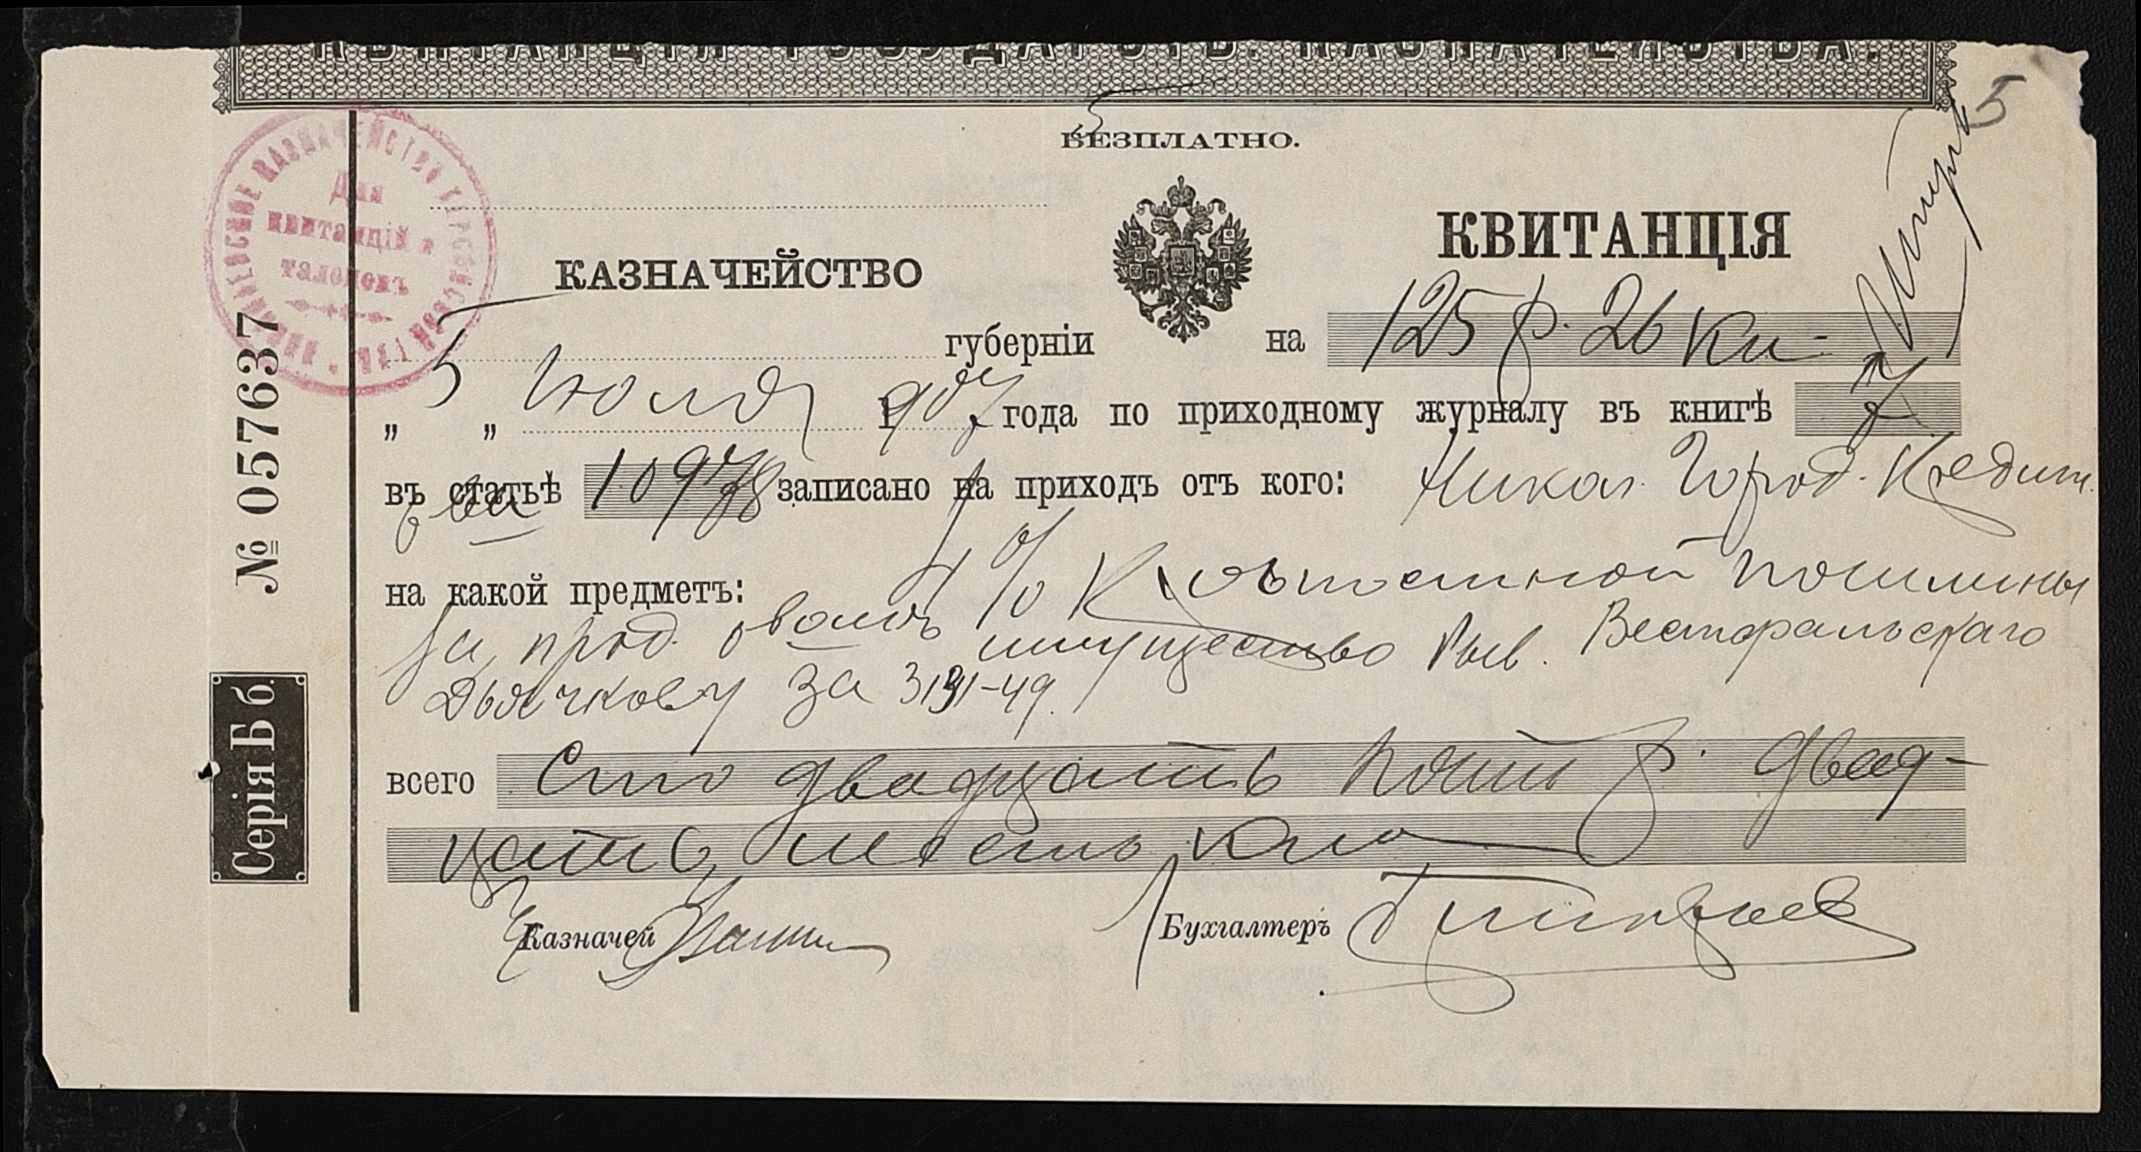 КВИТАНЦІЯ ГОСУДАРСТВ. КАЗНАЧЕЙСТВА.
5
БЕЗПЛАТНО.
НИКОЛАЕВСКОЕ КАЗНАЧЕЙСТВО ХЕРСОНСКОЙ ГУБ.
Для
квитанцій и
талоновъ
КАЗНАЧЕЙСТВО
КВИТАНЦІЯ
губерніи на 125 р. 26 кп
„5„ Июля 1907 года по приходному журналу въ книгѣ
въ статьѣ 10978 записано на приходъ отъ кого: Никол. Город. Кредит.
о-ва
на какой предметъ: 4% Крѣпостной пошлины
за прод. имущество Вестфальскаго
Дьячкову за 3131-49
всего Сто двадцать пять р. двад-
цать шесть коп
Казначей
Бухгалтеръ
№ 057637
Серія Б б.